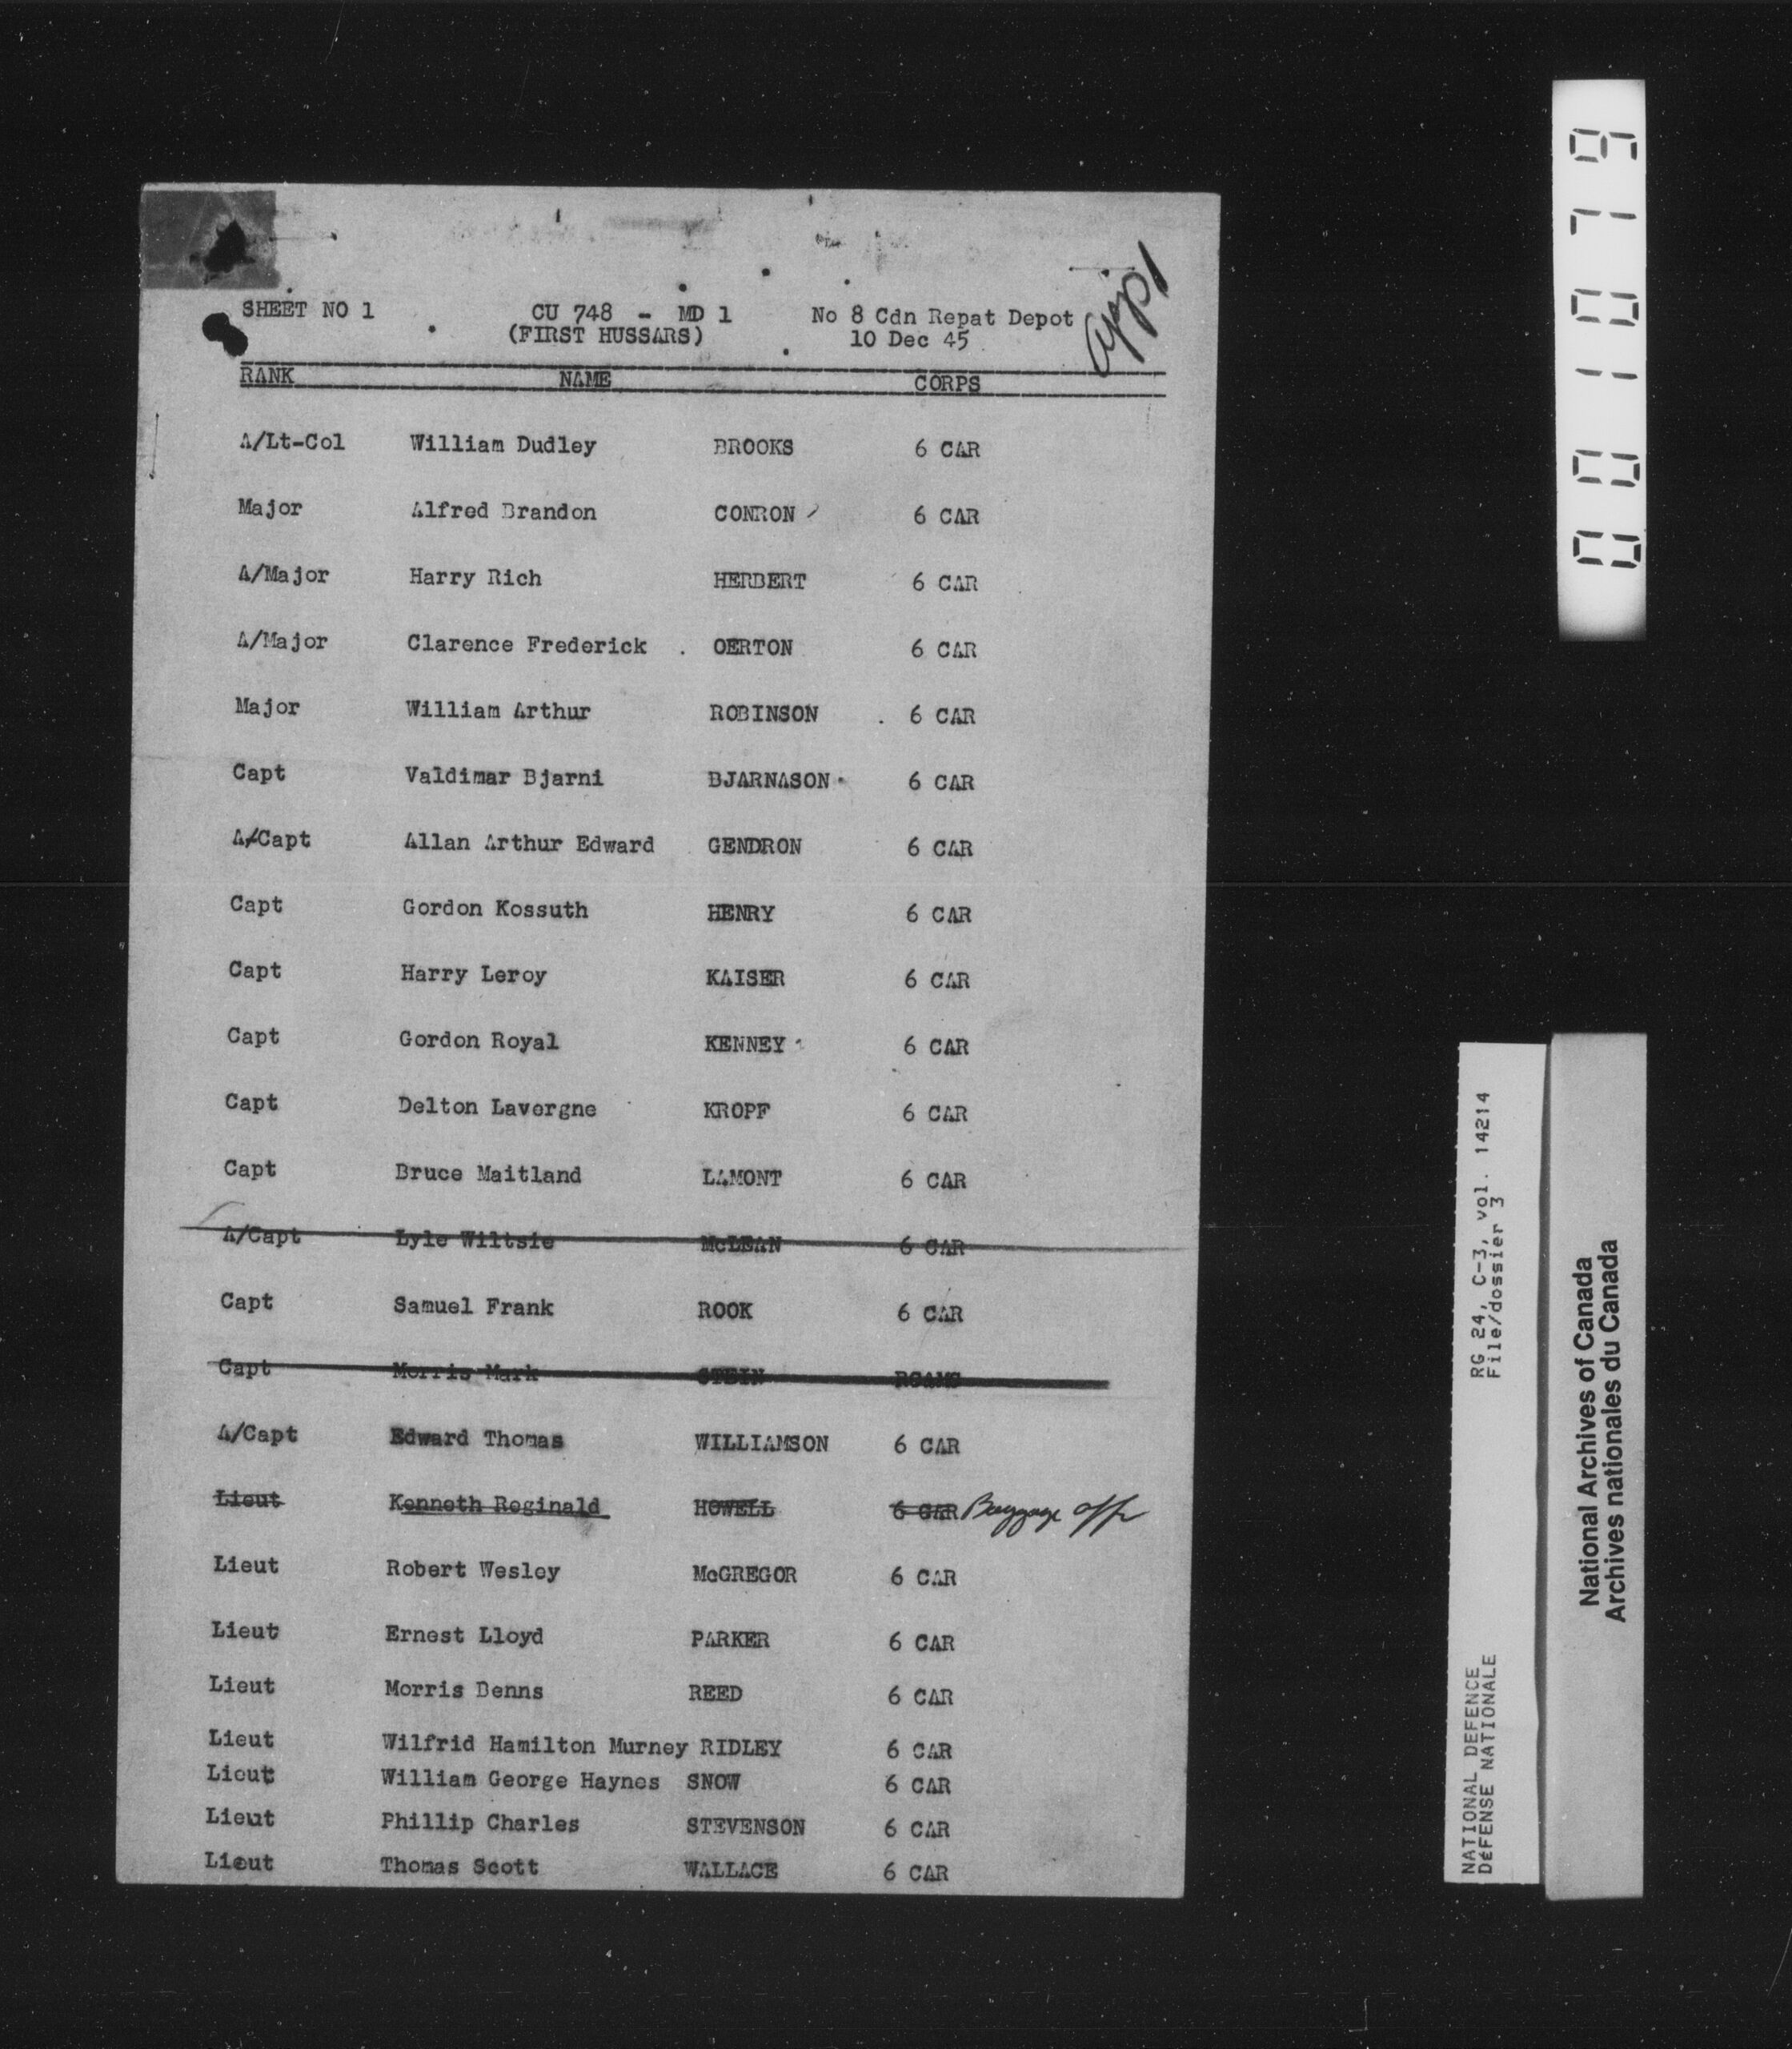 App 1
SHEET NO 1 CU 748 - MD 1 No 8 Cdn Repat Depot
(FIRST HUSSARS) 10 Dec 45
RANK NAME CORPS
A/Lt-Col William Dudley BROOKS 6 CAR
Major Alfred Brandon CONRON 6 CAR
A/Major Harry Rich HERBERT 6 CAR
A/Major Clarence Frederick . OERTON 6 CAR
Major William Arthur ROBINSON . 6 CAR
Capt Valdimar Bjarni BJARNASON 6 CAR
A/Capt Allan Arthur Edward GENDRON 6 CAR
Capt Gordon Kossuth HENRY 6 CAR
Capt Harry Leroy KAISER 6 CAR
Capt Gordon Royal KENNEY 6 CAR
Capt Delton Lavergne KROPF 6 CAR
Capt Bruce Maitland LAMONT 6 CAR
A/Capt Lyle Wiltsie McLEAN 6 CAR
Capt Samuel Frank ROOK 6 CAR
Capt Morris Mark STEIN RCAMC
A/Capt Edward Thomas WILLIAMSON 6 CAR
Lieut Kenneth Reginald HOWELL 6 CAR Baggage offr
Lieut Robert Wesley McGREGOR 6 CAR
Lieut Ernest Lloyd PARKER 6 CAR
Lieut Morris Denns REED 6 CAR
Lieut Wilfrid Hamilton Murney RIDLEY 6 CAR
Lieut William George Haynes SNOW 6 CAR
Lieut Phillip Charles STEVENSON 6 CAR
Lieut Thomas Scott WALLACE 6 CAR
001079
NATIONAL DEFENCE RG 24, C-3, vol. 14214
DéFENSE NATIONALE File/dossier 3
National Archives of Canada
Archives nationales du Canada